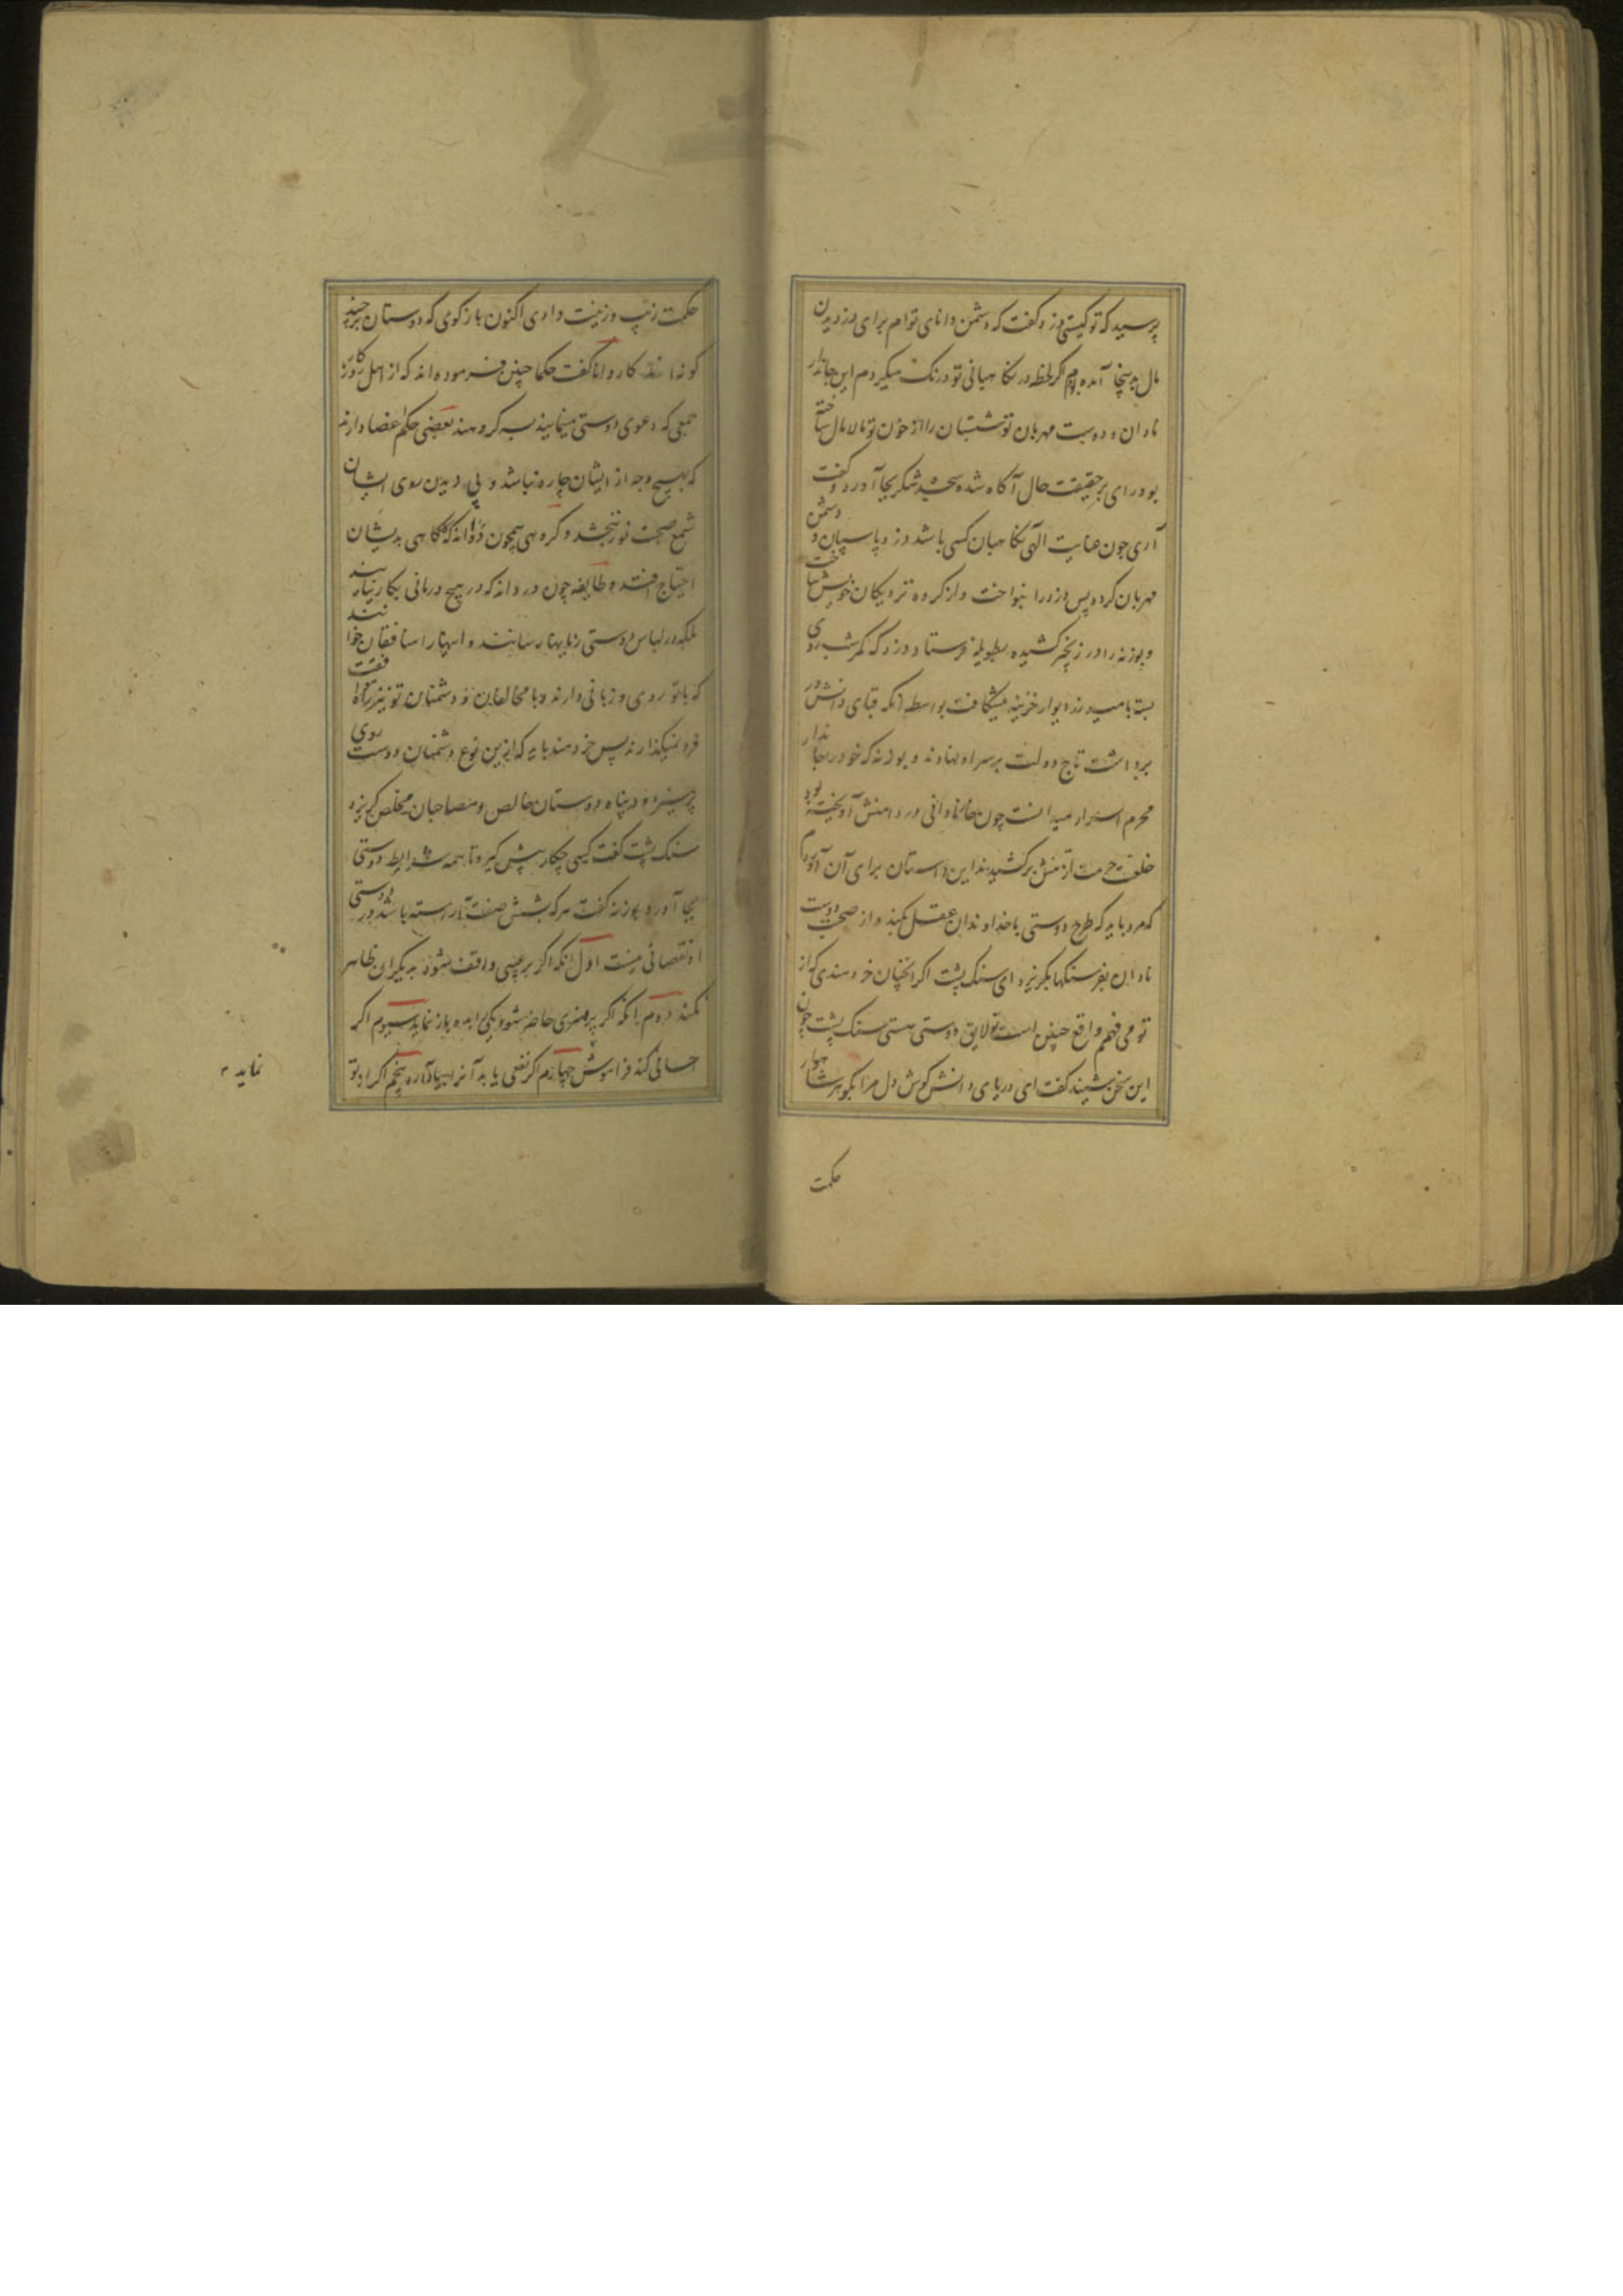 پرسید که تو کیستی دزد گفت که دشمن دانای توام برای دزدیدن
مال بدینجا آمده بودم اگر لحظه در نگاهبانی تو درنگ میکردم این جاندار
نادان و دوست مهربان تو شبستان را از خون تو مالامال ساخته
بود رای بر حقیقت حال آگاه شده سجده شکر بجا آورد و گفت
آری چون عنایت الهی نگاهبان کسی باشد دزد پاسبان و دشمن
مهربان گردد پس دزد را بنواخت و از گروه نزدیکان خویش ساخت
و بوزنه را در زنجیر کشیده بطویله فرستاد دزد که کمر شب روی
بسته بامید زر دیوار خزینه میشکافت بواسطه آنکه قبای دانش در
برداشت تاج دولت بر سر او نهادند و بوزنه که خود را جاندار
محرم اسرار میدانست چون خار نادانی در دامنش آویخته بود
خلعت حرمت از تنش برکشیدند این داستان برای آن آوردم
که مرد باید که طرح دوستی با خداوندان عقل بکند و از صحبت دوست
نادان بفرسنگها بگریزد ای سنگ پشت اگر انچنان خردمندی که از
تو می فهمم واقع چنین است تو لایق دوستی هستی سنگ پشت چون
این سخن شنید گفت ای دریای دانش گوش دل مرا بگوهر شاهوار
حکمت
حکمت زیب و زینت دادی اکنون بازگوی که دوستان بر چند
گونه اند کاردانا گفت حکما چنین فرموده اند که از اهل روزکار
جمعی که دعوی دوستی مینمایند سه گروهند بعضی حکم غذا دارند
که بهیچ وجه از ایشان چاره نباشد و بی دیدن روی ایشان
شمع صحبت نور نبخشد و گروهی همچون دوااند که گاهی بدیشان
احتیاج افتد و طایفه چون درداند که در هیچ درمانی بکار نیایند
بلکه در لباس دوستی زیانها رسانند و اینها را منافقان خوانند
که با تو روی و زبانی دارند و با مخالفان و دشمنان تو نیز راه موافقت
فرو نمیگذارند پس خردمند باید که ازین نوع دشمنان دوست روی
پرهیزد و در پناه دوستان خالص و مصاحبان مخلص گریزد
سنگ پشت گفت کسی چکار پیش گیرد تا همه شرایط دوستی
بجا آورد بوزنه گفت هر که بشش صفت آراسته باشد در دوستی
او نقصانی نیست اول آنکه اگر بر عیبی واقف شود بدیگران ظاهر
نکند دوم آنکه اگر بر هنری حاضر شود یکی را بده باز نماید سیوم اگر
احسانی کند فراموش چهارم اگر نفعی یابد آنرا بیاد آرد پنجم اگر از تو
نماید